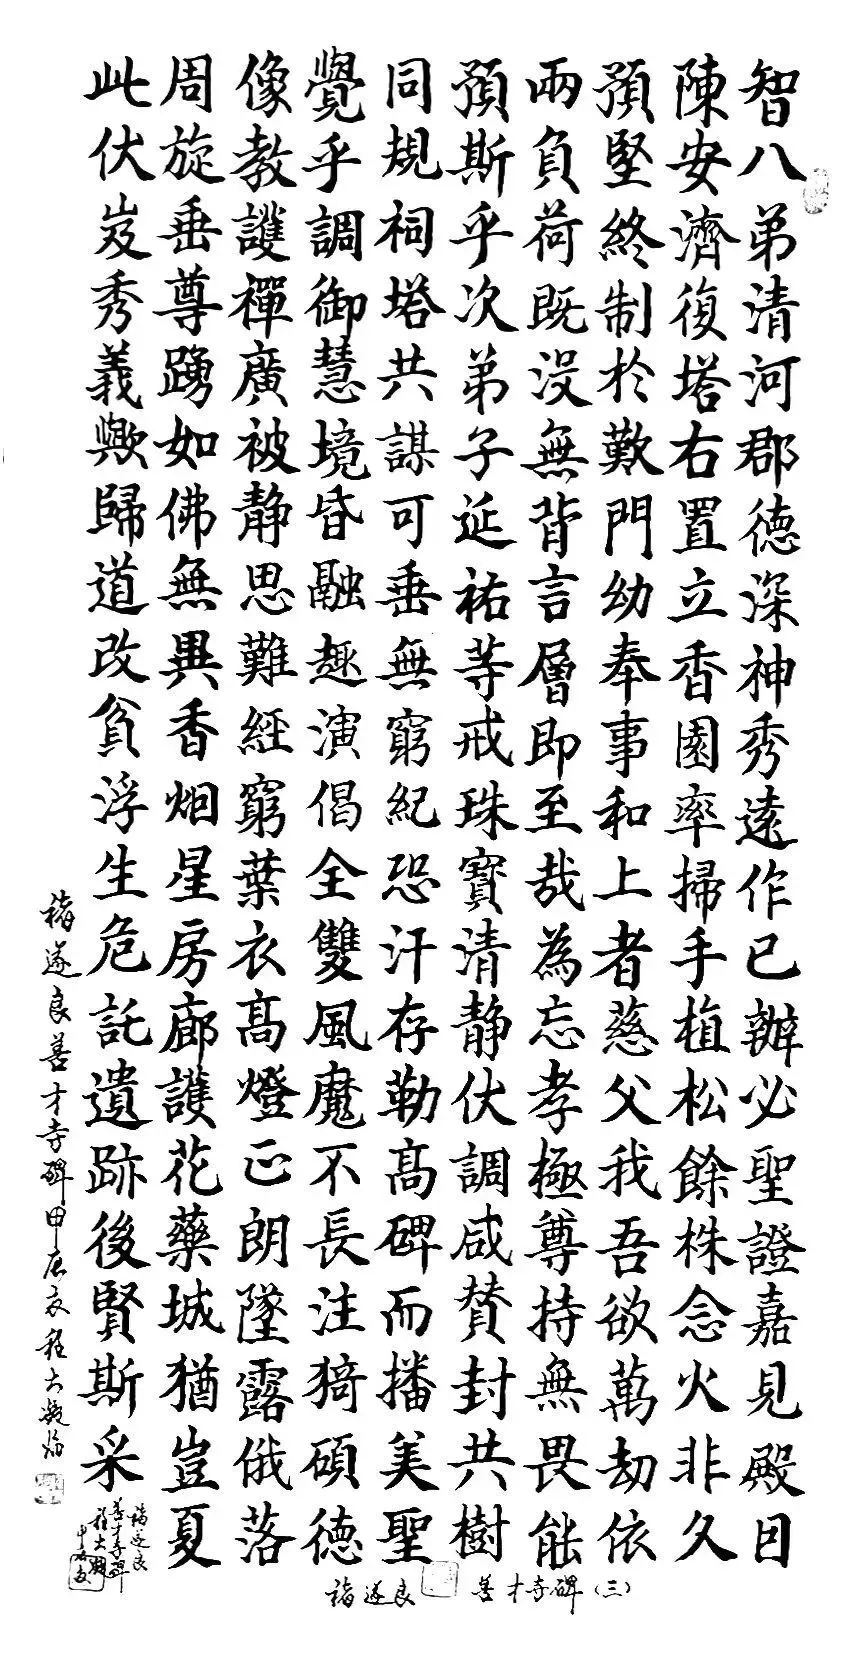 智八弟清河郡德深神秀遠作已辦必聖證嘉見殿目
陳安濟復塔右置立香園率掃手植松餘株念火非久
預堅終制於歎門幼奉事和上者慈父我吾欲萬劫依
兩負荷既沒無背言層即至哉為忘孝極尊持無畏能
預斯乎次弟子延祐等戒珠寶清静伏調咸賛封共樹
同規祠塔共謀可垂無窮紀恐汗存勒高碑而播美聖
覺乎調御慧境昏融趣演偈全雙風魔不長注猗碩德
像教護禪廣被静思難經窮葉衣高燈正朗墜露俄落
周旋垂尊踴如佛無異香烟星房廊護花藥城猶豈夏
此伏岌秀義歟歸道改貧浮生危託遺跡後賢斯采
褚遂良善才寺碑甲辰夏程大
褚遂良
善才寺碑
程大
褚遂良 善才寺碑（三）